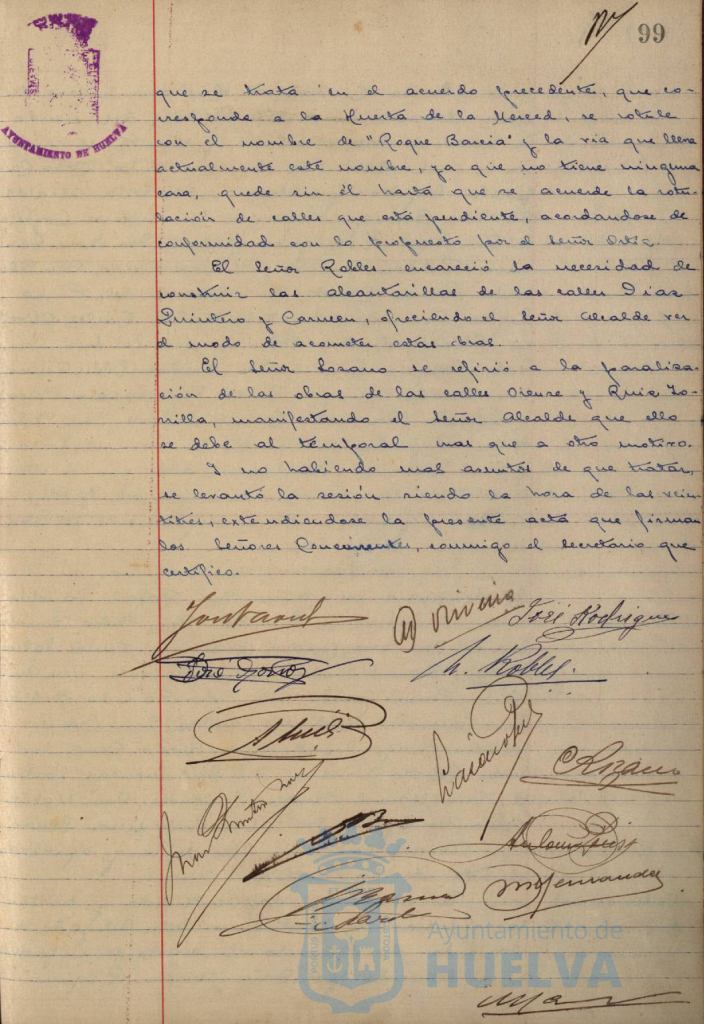 99
AYUNTAMIENTO DE HUELVA
que se trata en el acuerdo precedente, que co-
rresponde a la Huerta de la Merced, se rotule
con el nombre de "Roque Barcia" y la via que lleva
actualmente este nombre, ya que no tiene ninguna
casa, quede sin él hasta que se acuerde la rotu-
lación de calles que está pendiente, acordandose de
conformidad con lo propuesto por el Señor Ortiz.
El Señor Robles encareció la necesidad de
construir las alcantarillas de las calles Diaz
Quintero y Carmen, ofreciendo el Señor Alcalde ver
el modo de acometer estas obras.
El Señor Lozano se refirió a la paraliza-
ción de las obras de las calles Orense y Ruiz Zo-
rrilla, manifestando el Señor Alcalde que ello
se debe al temporal mas que a otro motivo.
Y no habiendo mas asuntos de que tratar,
se levantó la sesión siendo la hora de las vein-
titres, extendiendose la presente acta que firman
los Señores Concurrentes, conmigo el Secretario que
certifico.
José Rodriguez
Robles
C Lozano
Ayuntamiento de
HUELVA